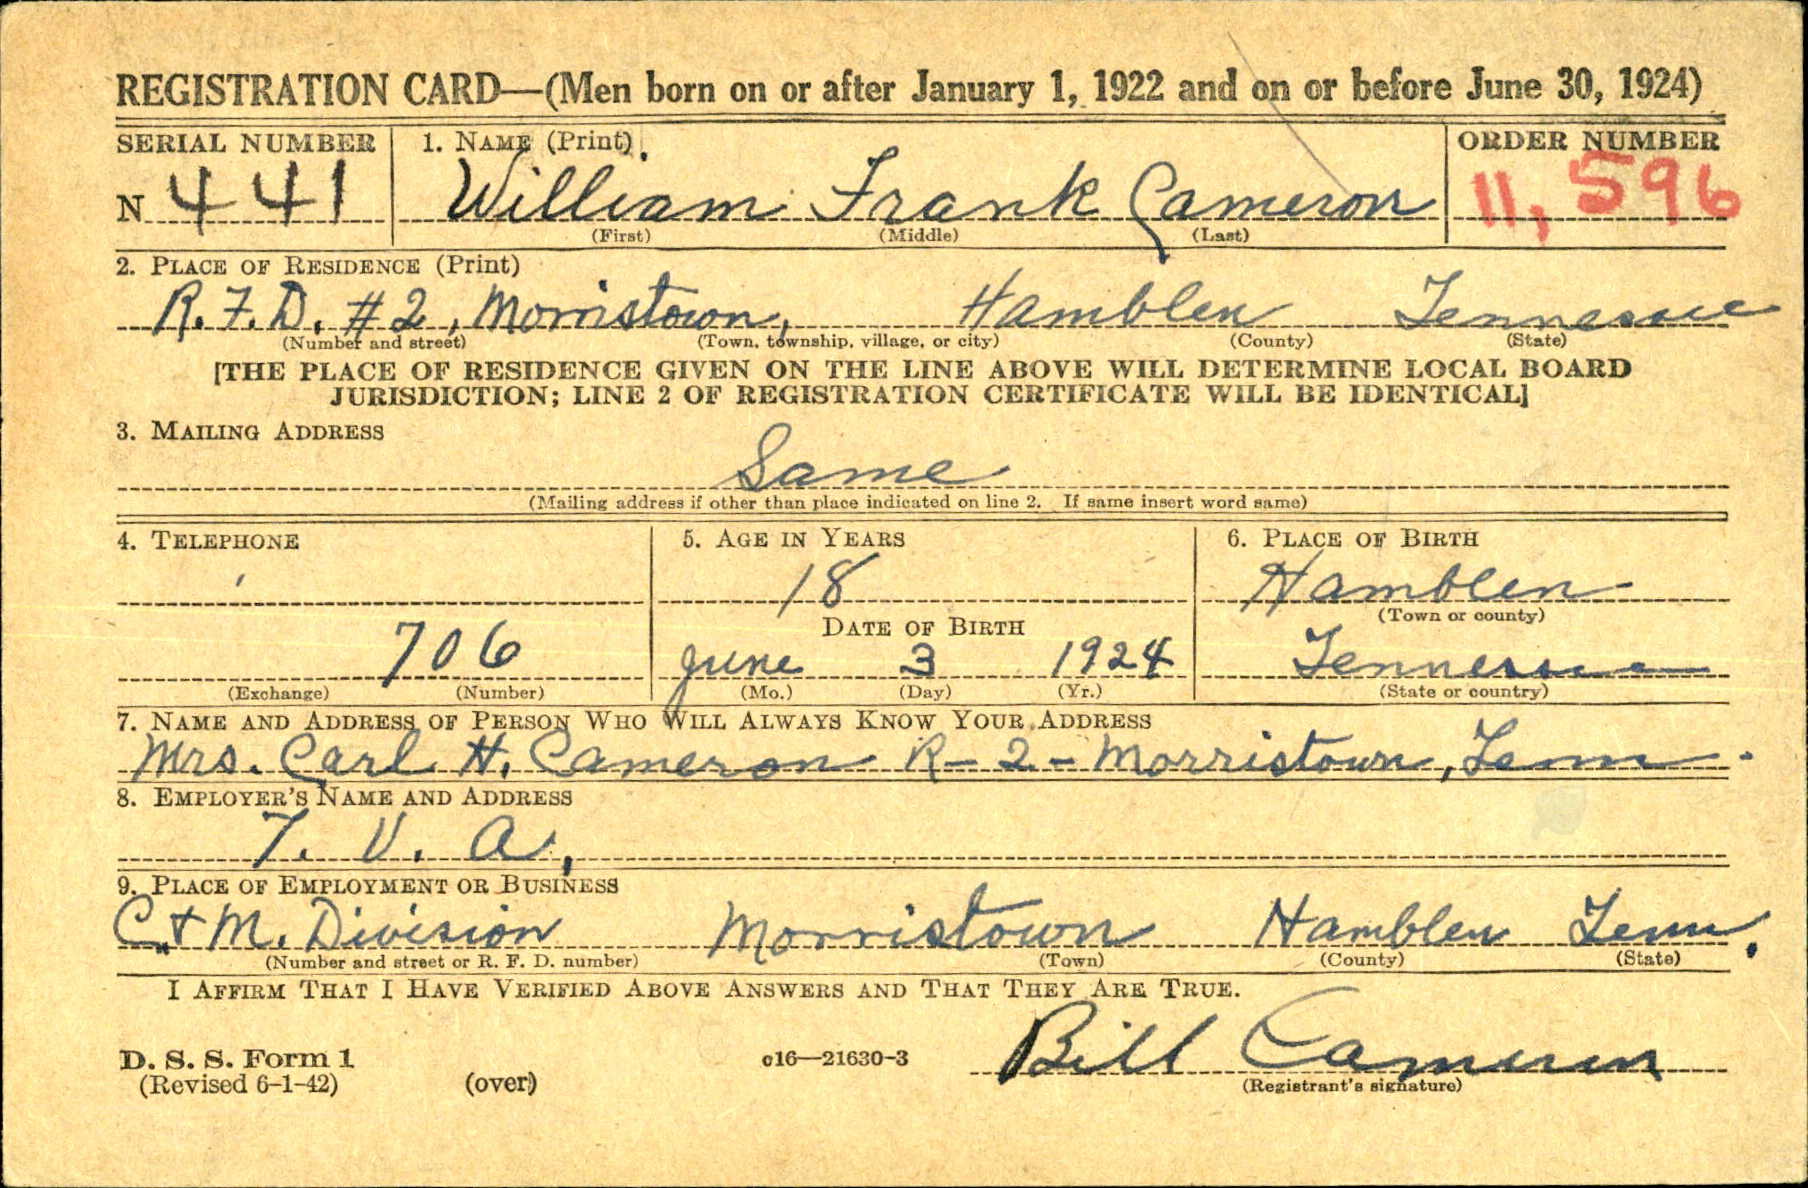 REGISTRATION CARD—(Men born on or after January 1, 1922 and on or before June 30, 1924)
SERIAL NUMBER 1. NAME (Print) ORDER NUMBER
N 441 William Frank Cameron 11,596
(First) (Middle) (Last)
2. PLACE OF RESIDENCE (Print)
R.F.D. #2, Morristown, Hamblen Tennessee
(Number and street) (Town, township, village, or city) (County) (State)
[THE PLACE OF RESIDENCE GIVEN ON THE LINE ABOVE WILL DETERMINE LOCAL BOARD
JURISDICTION; LINE 2 OF REGISTRATION CERTIFICATE WILL BE IDENTICAL]
3. MAILING ADDRESS
Same
(Mailing address if other than place indicated on line 2. If same insert word same)
4. TELEPHONE 5. AGE IN YEARS 6. PLACE OF BIRTH
18 Hamblen
(Town or county)
DATE OF BIRTH
706 June 3 1924 Tennessee
(Exchange) (Number) (Mo.) (Day) (Yr.) (State or country)
7. NAME AND ADDRESS OF PERSON WHO WILL ALWAYS KNOW YOUR ADDRESS
Mrs. Carl H. Cameron R-2-Morristown, Tenn.
8. EMPLOYER'S NAME AND ADDRESS
T. V. A.
9. PLACE OF EMPLOYMENT OR BUSINESS
C.+M. Division Morristown Hamblen Tenn.
(Number and street or R. F. D. number) (Town) (County) (State)
I AFFIRM THAT I HAVE VERIFIED ABOVE ANSWERS AND THAT THEY ARE TRUE.
Bill Cameron
D. S. S. Form 1 c16—21630-3
(Revised 6-1-42) (over) (Registrant's signature)